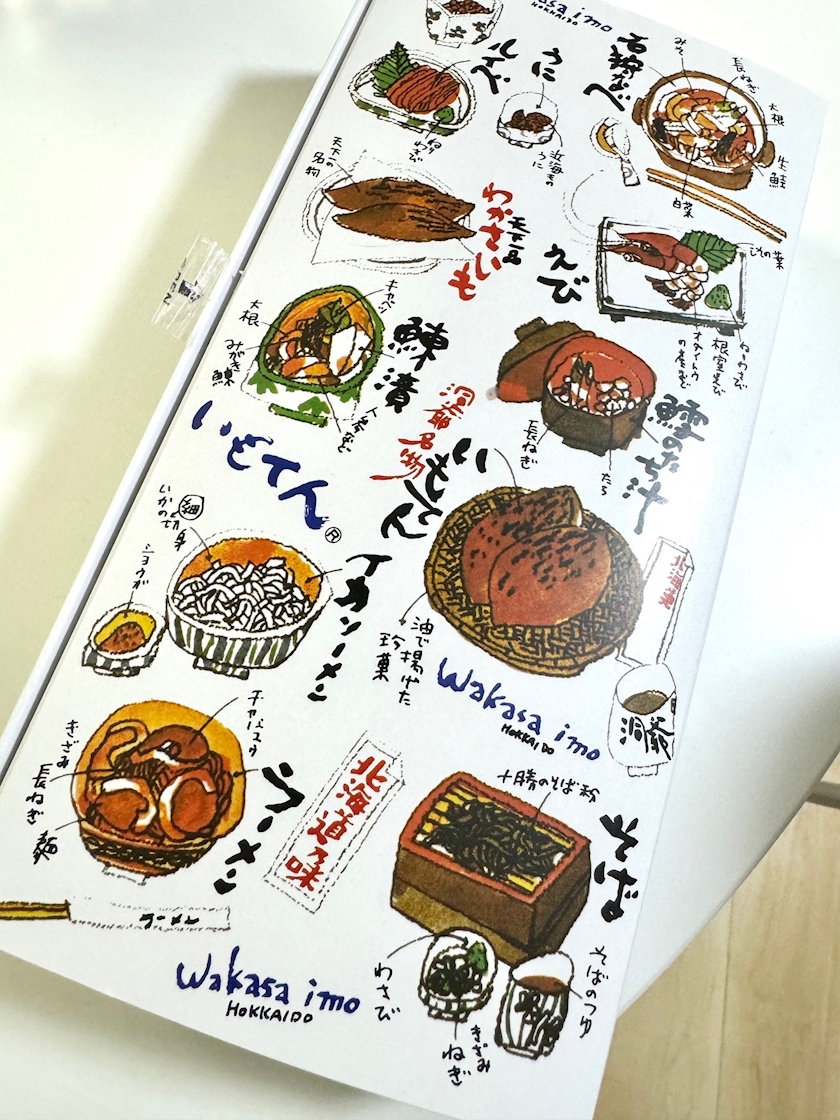 Wakasa imo
HOKKAIDO
石狩なべ
みそ
長ねぎ
大根
生鮭
白菜
ルイベ
ねりわさび
うに
近海ものうに
天下一の名物
わかさいも
天下一品
えび
しその葉
ねりわさび
根室えび
鰊漬
キャベツ
大根
みがき鰊
人参など
鱈のたち汁
長ねぎ
たち
洞爺名物
いもてん
いもてん
油で揚げた珍菓
北海道
洞爺
イカソーメン
いかの細切身
ショウガ
Wakasa imo
HOKKAIDO
ラーメン
チャーシュウ
きざみ長ねぎ
麺
北海道乃味
ラーメン
そば
十勝のそば粉
わさび
きざみねぎ
そばのつゆ
Wakasa imo
HOKKAIDO